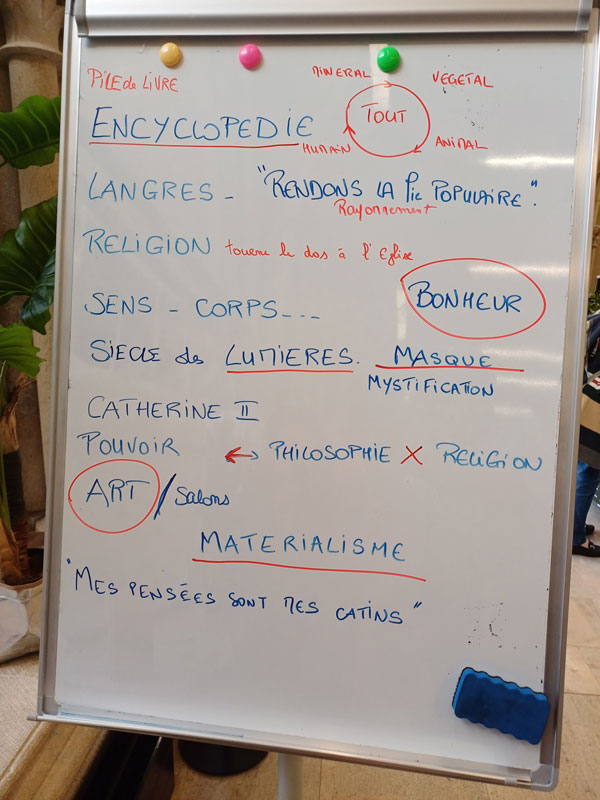 PILE de LIVRE
MINERAL
VEGETAL
TOUT
HUMAIN
ANIMAL
ENCYCLOPEDIE
LANGRES - "RENDONS LA Pic POPULAIRE".
Rayonnement
RELIGION tourne le dos à l'Eglise
SENS - CORPS...
BONHEUR
SIECLE des LUMIERES. MASQUE
MYSTIFICATION
CATHERINE II
POUVOIR ↔ PHILOSOPHIE X RELIGION
ART / Salons
MATERIALISME
"MES PENSÉES SONT MES CATINS"